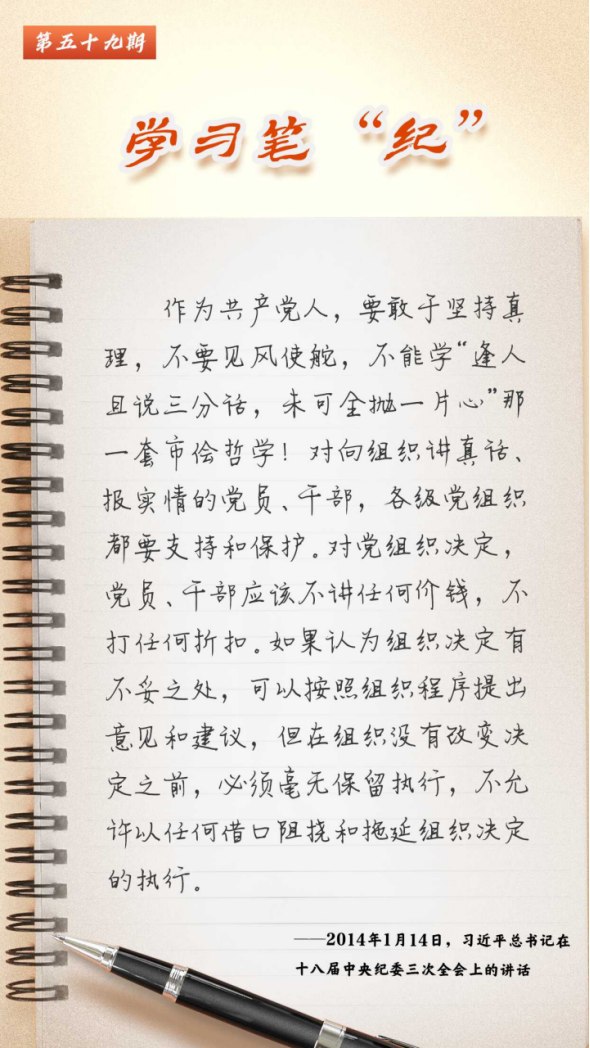 第五十九期
学习笔“纪”
作为共产党人，要敢于坚持真
理，不要见风使舵，不能学“逢人
且说三分话，未可全抛一片心”那
一套市侩哲学！对向组织讲真话、
报实情的党员、干部，各级党组织
都要支持和保护。对党组织决定，
党员、干部应该不讲任何价钱，不
打任何折扣。如果认为组织决定有
不妥之处，可以按照组织程序提出
意见和建议，但在组织没有改变决
定之前，必须毫无保留执行，不允
许以任何借口阻挠和拖延组织决定
的执行。
——2014年1月14日，习近平总书记在
十八届中央纪委三次全会上的讲话